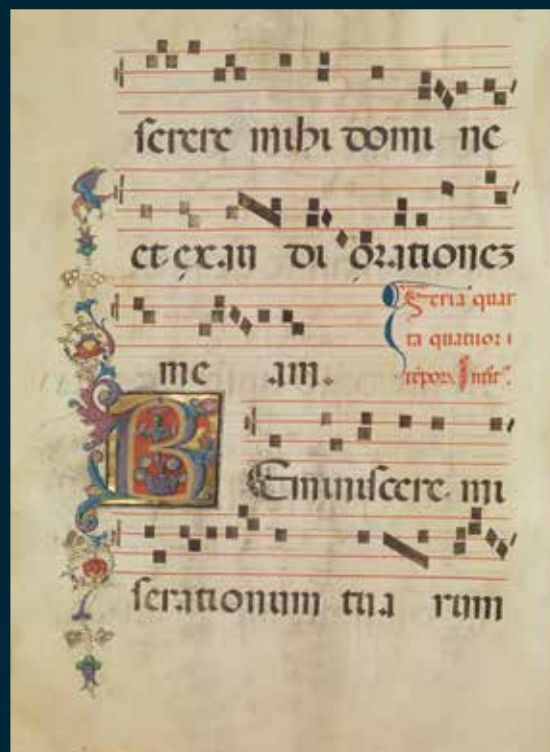 serere mihi domi ne
et exau di orationez
me am.
Feria quar
ta quatuor t
tēpoꝝ. Intr̄.
REminiscere. mi
serationum tua rum